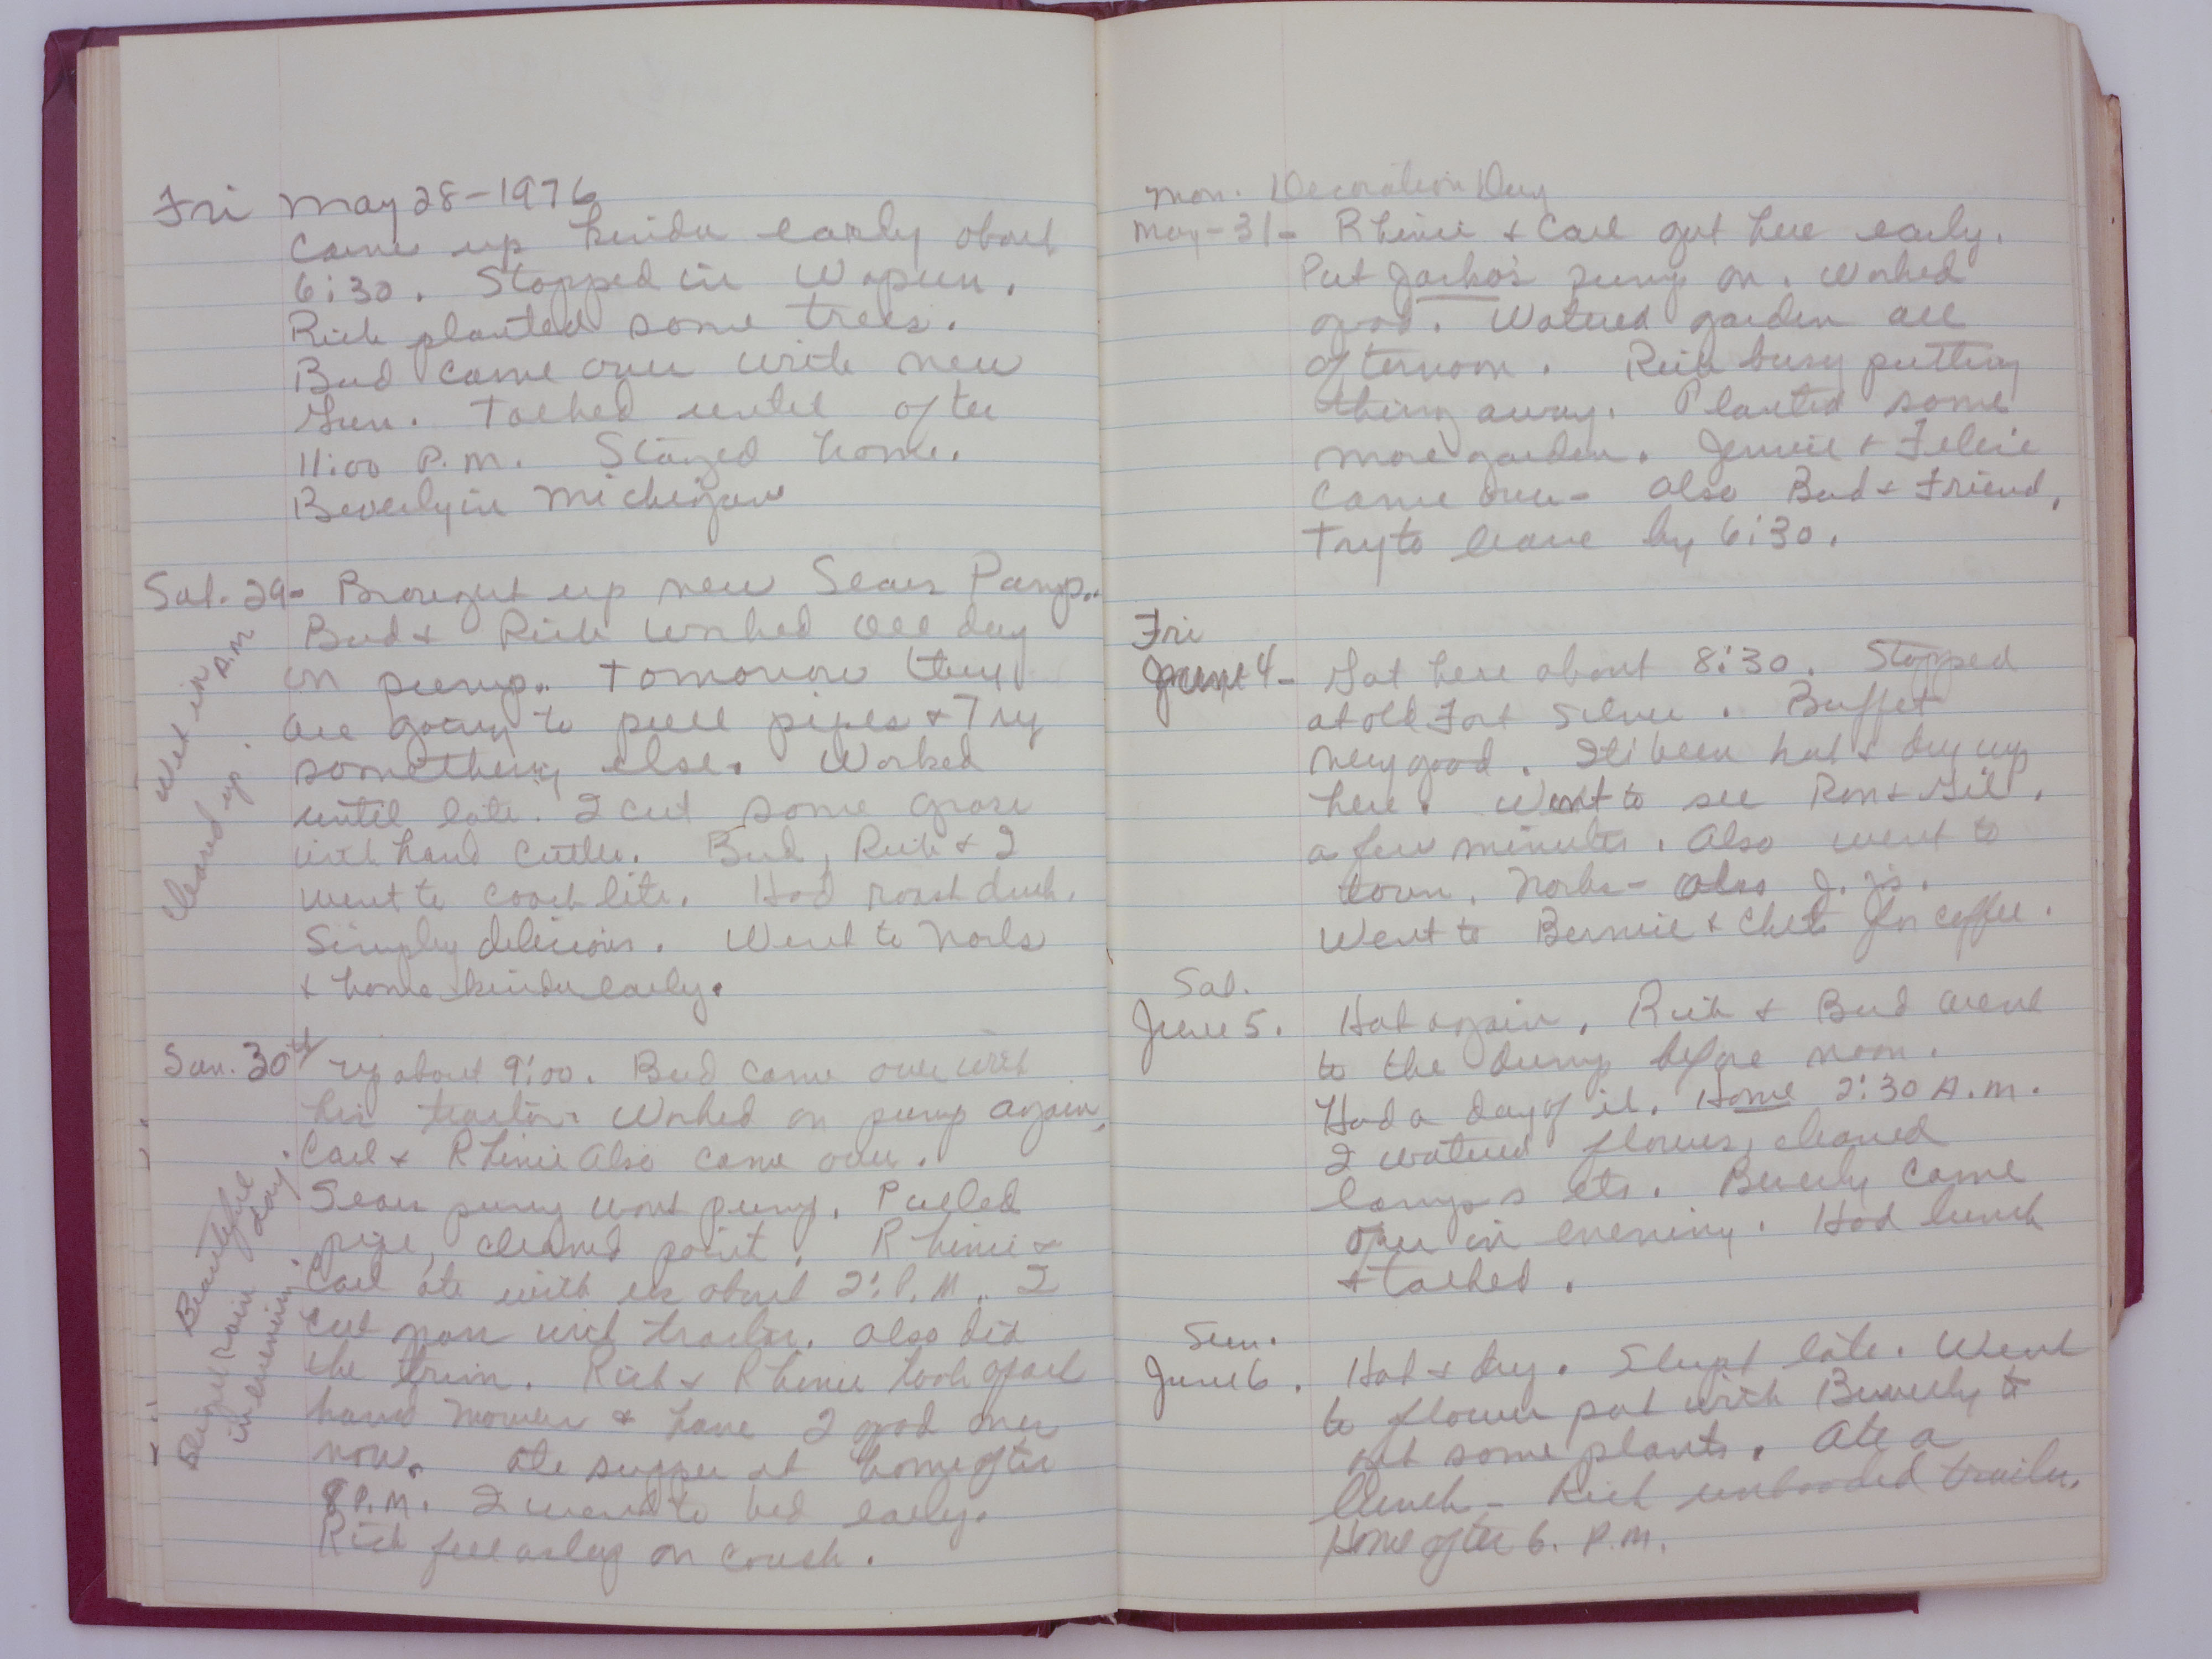 Fri May 28-1976
Came up kinda early about
6:30. Stopped in Wapun.
Rich planted some trees.
Bud came over with new
Gun. Talked until after
11:00 P.M. Stayed home.
Beverly in Michigan
Sat. 29- Brought up new Sears Pump..
Bud & Rich worked all day
on pump.. Tomorrow they
are going to pull pipes & Try
something else. Worked
until late. I cut some grass
with hand cutter. Bud, Rich & I
went to coach lite. Had roast duck.
Simply delicious. Went to Norbs
& home kinda early.
Wet in A.M
Cleared up.
Sun. 30th up about 9:00. Bud came over with
his tractor. Worked on pump again.
Carl & Rhinie Also came over.
Sears pump wont pump. Pulled
pipe, cleaned point. Rhinie &
Carl ate with us about 2: P.M.. I
cut grass with tractor. Also did
the trim. Rich & Rhinie took apart
hand mowers & have 2 good ones
now. Ate supper at home after
8 P.M. I went to bed early.
Rich fell asleep on couch.
Beautiful day.
Slight rain
in evening.
Mon. Decoration Day
May-31- Rhinie & Carl got here early.
Put Jacko's pump on. Worked
good. Watered garden all
afternoon. Rich busy putting
thing away. Planted some
more garden. Jennie & Felix
came over- also Bud & Friend.
Try to leave by 6:30.
Fri
June 4- Got here about 8:30. Stopped
at old Fort Silver. Buffet
very good. Its been hot & dry up
here. Went to see Ron & Gil.
a few minutes. Also went to
town. Norbs- also J. J's.
Went to Bernie & Chet for coffee.
Sat.
June 5. Hot again. Rich & Bud went
to the dump before noon.
Had a day of it. Home 2:30 A.M.
I watered flowers, cleaned
lamps etc. Beverly came
over in evening. Had lunch
& talked.
Sun.
June 6. Hot & dry. Slept late. Went
to flower pot with Beverly to
get some plants. Ate a
lunch- Rich unloaded trailer.
Home after 6. P.M.